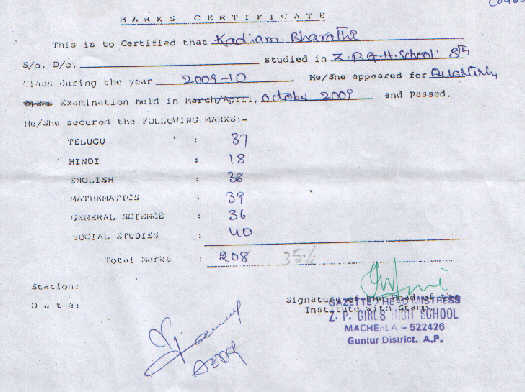 MARKS CERTIFICATE
This is to Certified that Kadiam Bharathi
S/o. D/o. studied in Z.P.G.H.School 8th
Class during the year 2009-10 He/She appeared for Quarterly
Examination held in March/April, October 2009 and Passed.
He/She secured the FOLLOWING MARKS:-
TELUGU : 37
HINDI : 18
ENGLISH : 38
MATHEMATICS : 39
GENERAL SCIENCE : 36
SOCIAL STUDIES : 40
Total Marks : 208 35%
Station:
Date:
Signature of the Head of the
Institute with Stamp
GAZETTED HEADMISTRESS
Z. P. GIRLS HIGH SCHOOL
MACHERLA - 522426
Guntur District. A.P.